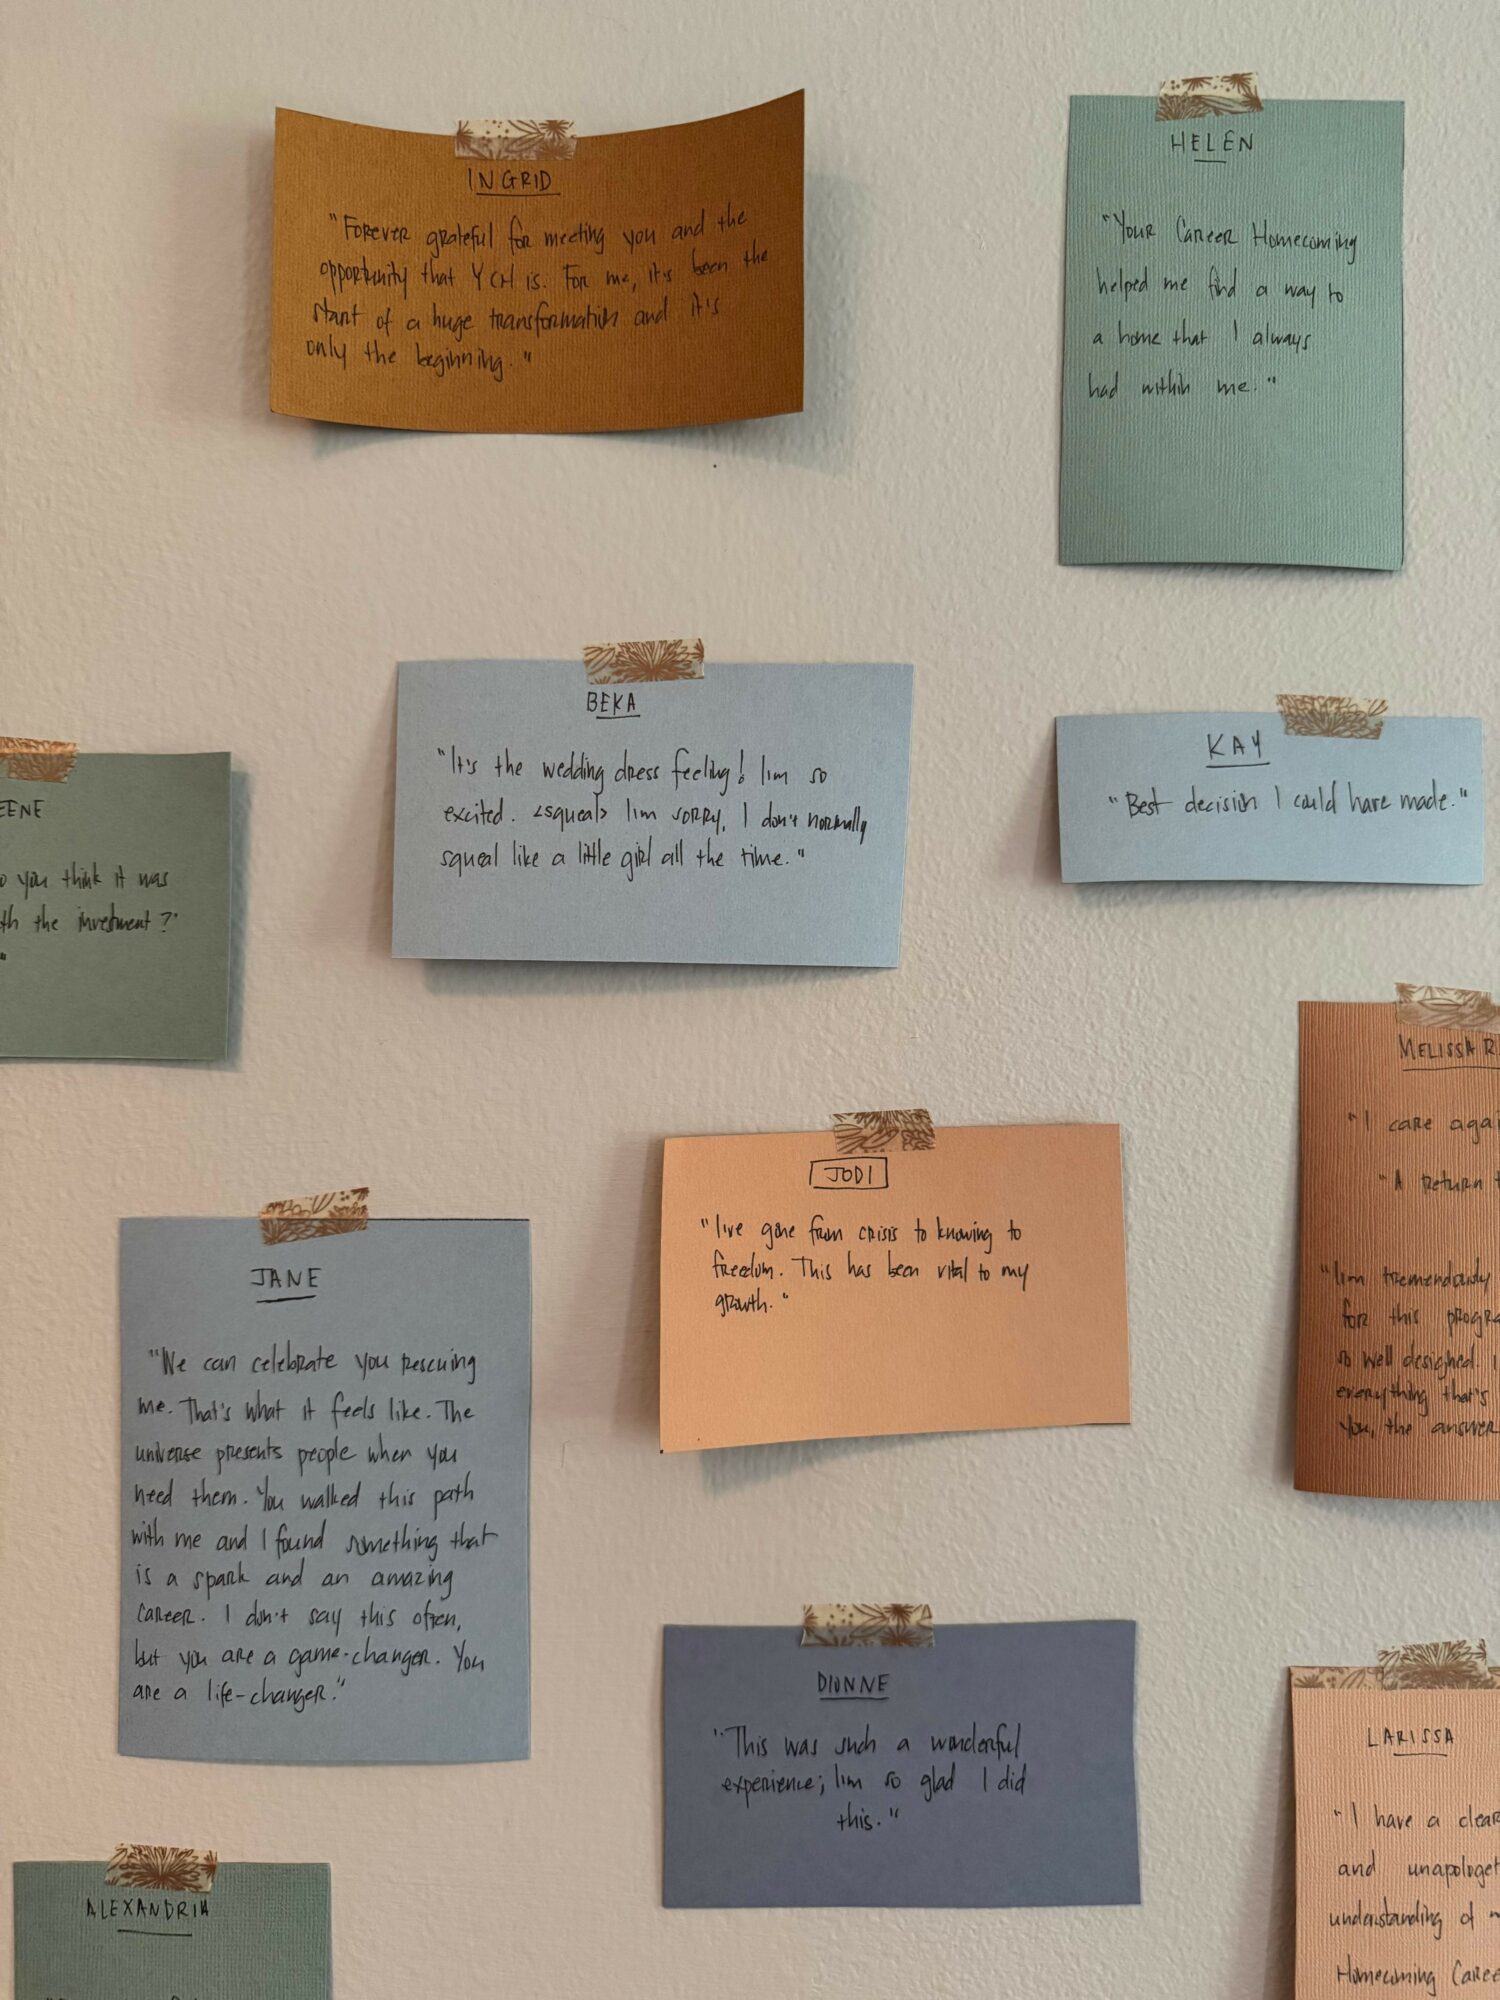 INGRID
"Forever grateful for meeting you and the
opportunity that YCH is. For me, it's been the
start of a huge transformation and it's
only the beginning."
HELEN
"Your Career Homecoming
helped me find a way to
a home that I always
had within me."
BEKA
"It's the wedding dress feeling! I'm so
excited. <squeal> I'm sorry, I don't normally
squeal like a little girl all the time."
KAY
"Best decision I could have made."
EENE
you think it was
the investment?"
"
MELISSA R
"I care
"A return
"I'm tremendously
for this
so well designed.
everything that's
you, the answer
JODI
"I've gone from crisis to knowing to
freedom. This has been vital to my
growth."
JANE
"We can celebrate you rescuing
me. That's what it feels like. The
universe presents people when you
need them. You walked this path
with me and I found something that
is a spark and an amazing
career. I don't say this often,
but you are a game-changer. You
are a life-changer."
DIONNE
"This was such a wonderful
experience; I'm so glad I did
this."
LARISSA
"I have a clear
and
understanding of
Homecoming Caree
ALEXANDRIA